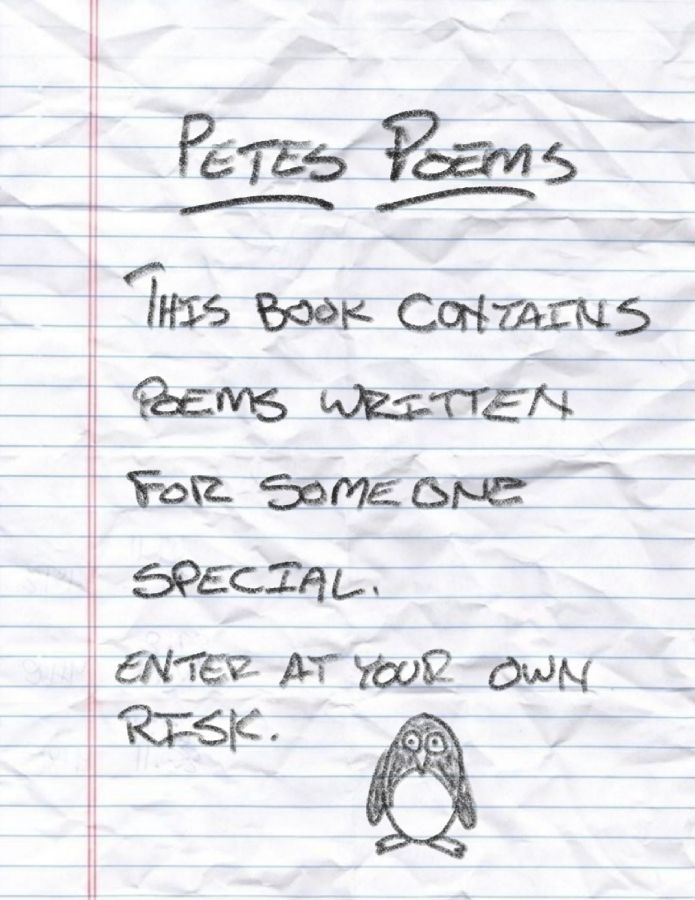 PETES POEMS
THIS BOOK CONTAINS
POEMS WRITTEN
FOR SOMEONE
SPECIAL.
ENTER AT YOUR OWN
RISK.